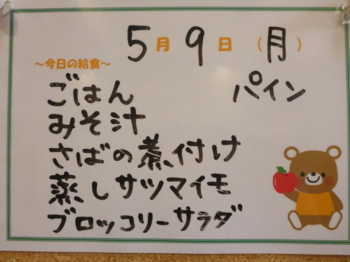 5月9日(月)
～今日の給食～
ごはん
パイン
みそ汁
さばの煮付け
蒸しサツマイモ
ブロッコリーサラダ